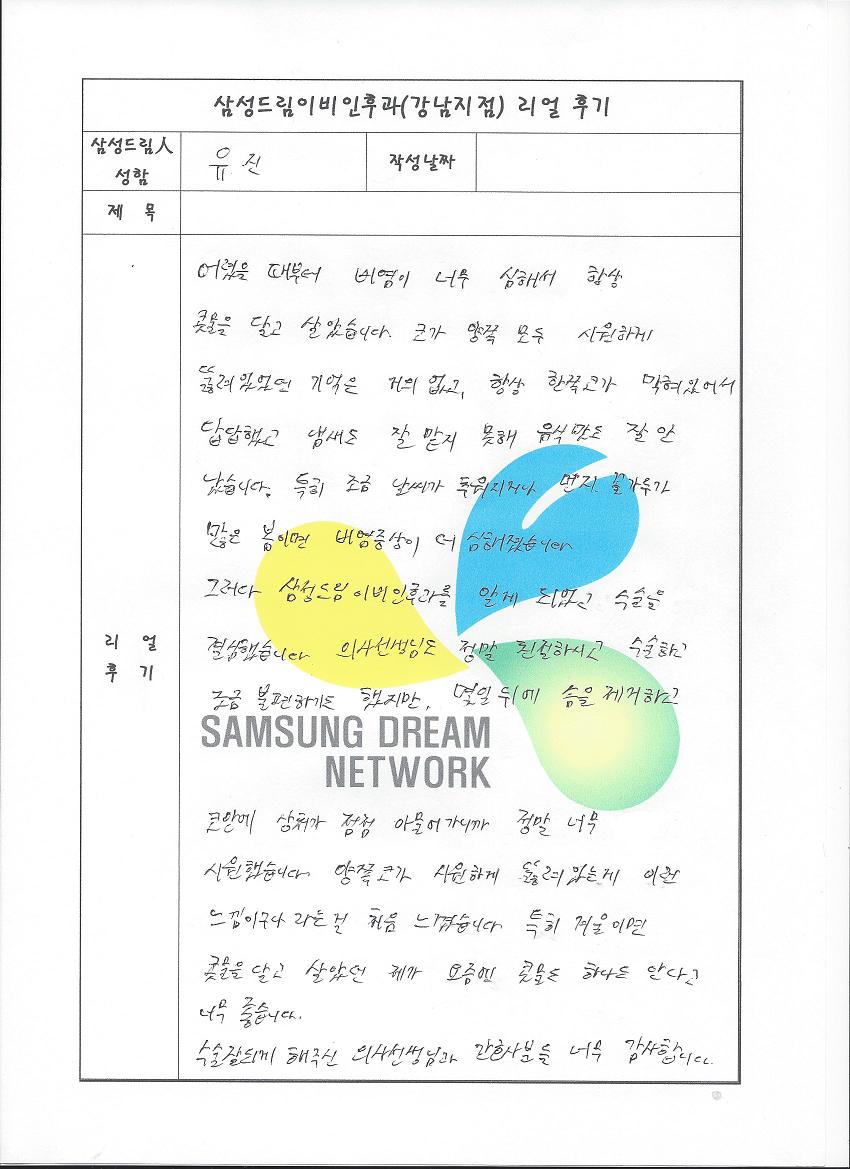 삼성드림이비인후과(강남지점) 리얼 후기
삼성드림人 성함
유진
작성날짜
제 목
리 얼 후 기
어렸을 때부터 비염이 너무 심해서 항상
콧물을 달고 살았습니다. 코가 양쪽 모두 시원하게
뚫려있었던 기억은 거의 없고, 항상 한쪽코가 막혀있어서
답답했고 냄새도 잘 맡지 못해 음식맛도 잘 안
났습니다. 특히 조금 날씨가 추워지거나 먼지 꽃가루가
많은 봄이면 비염증상이 더 심해졌습니다
그러다 삼성드림이비인후과를 알게 되었고 수술을
결심했습니다 의사선생님도 정말 친절하시고 수술하고
조금 불편하기도 했지만, 몇일 뒤에 솜을 제거하고
SAMSUNG DREAM
NETWORK
코안에 상처가 점점 아물어가니까 정말 너무
시원했습니다. 양쪽코가 시원하게 뚫려있는게 이런
느낌이구나 라는걸 처음 느꼈습니다. 특히 겨울이면
콧물을 달고 살았던 제가 요즘엔 콧물도 하나도 안나고
너무 좋습니다.
수술잘되게 해주신 의사선생님과 간호사분들 너무 감사합니다.